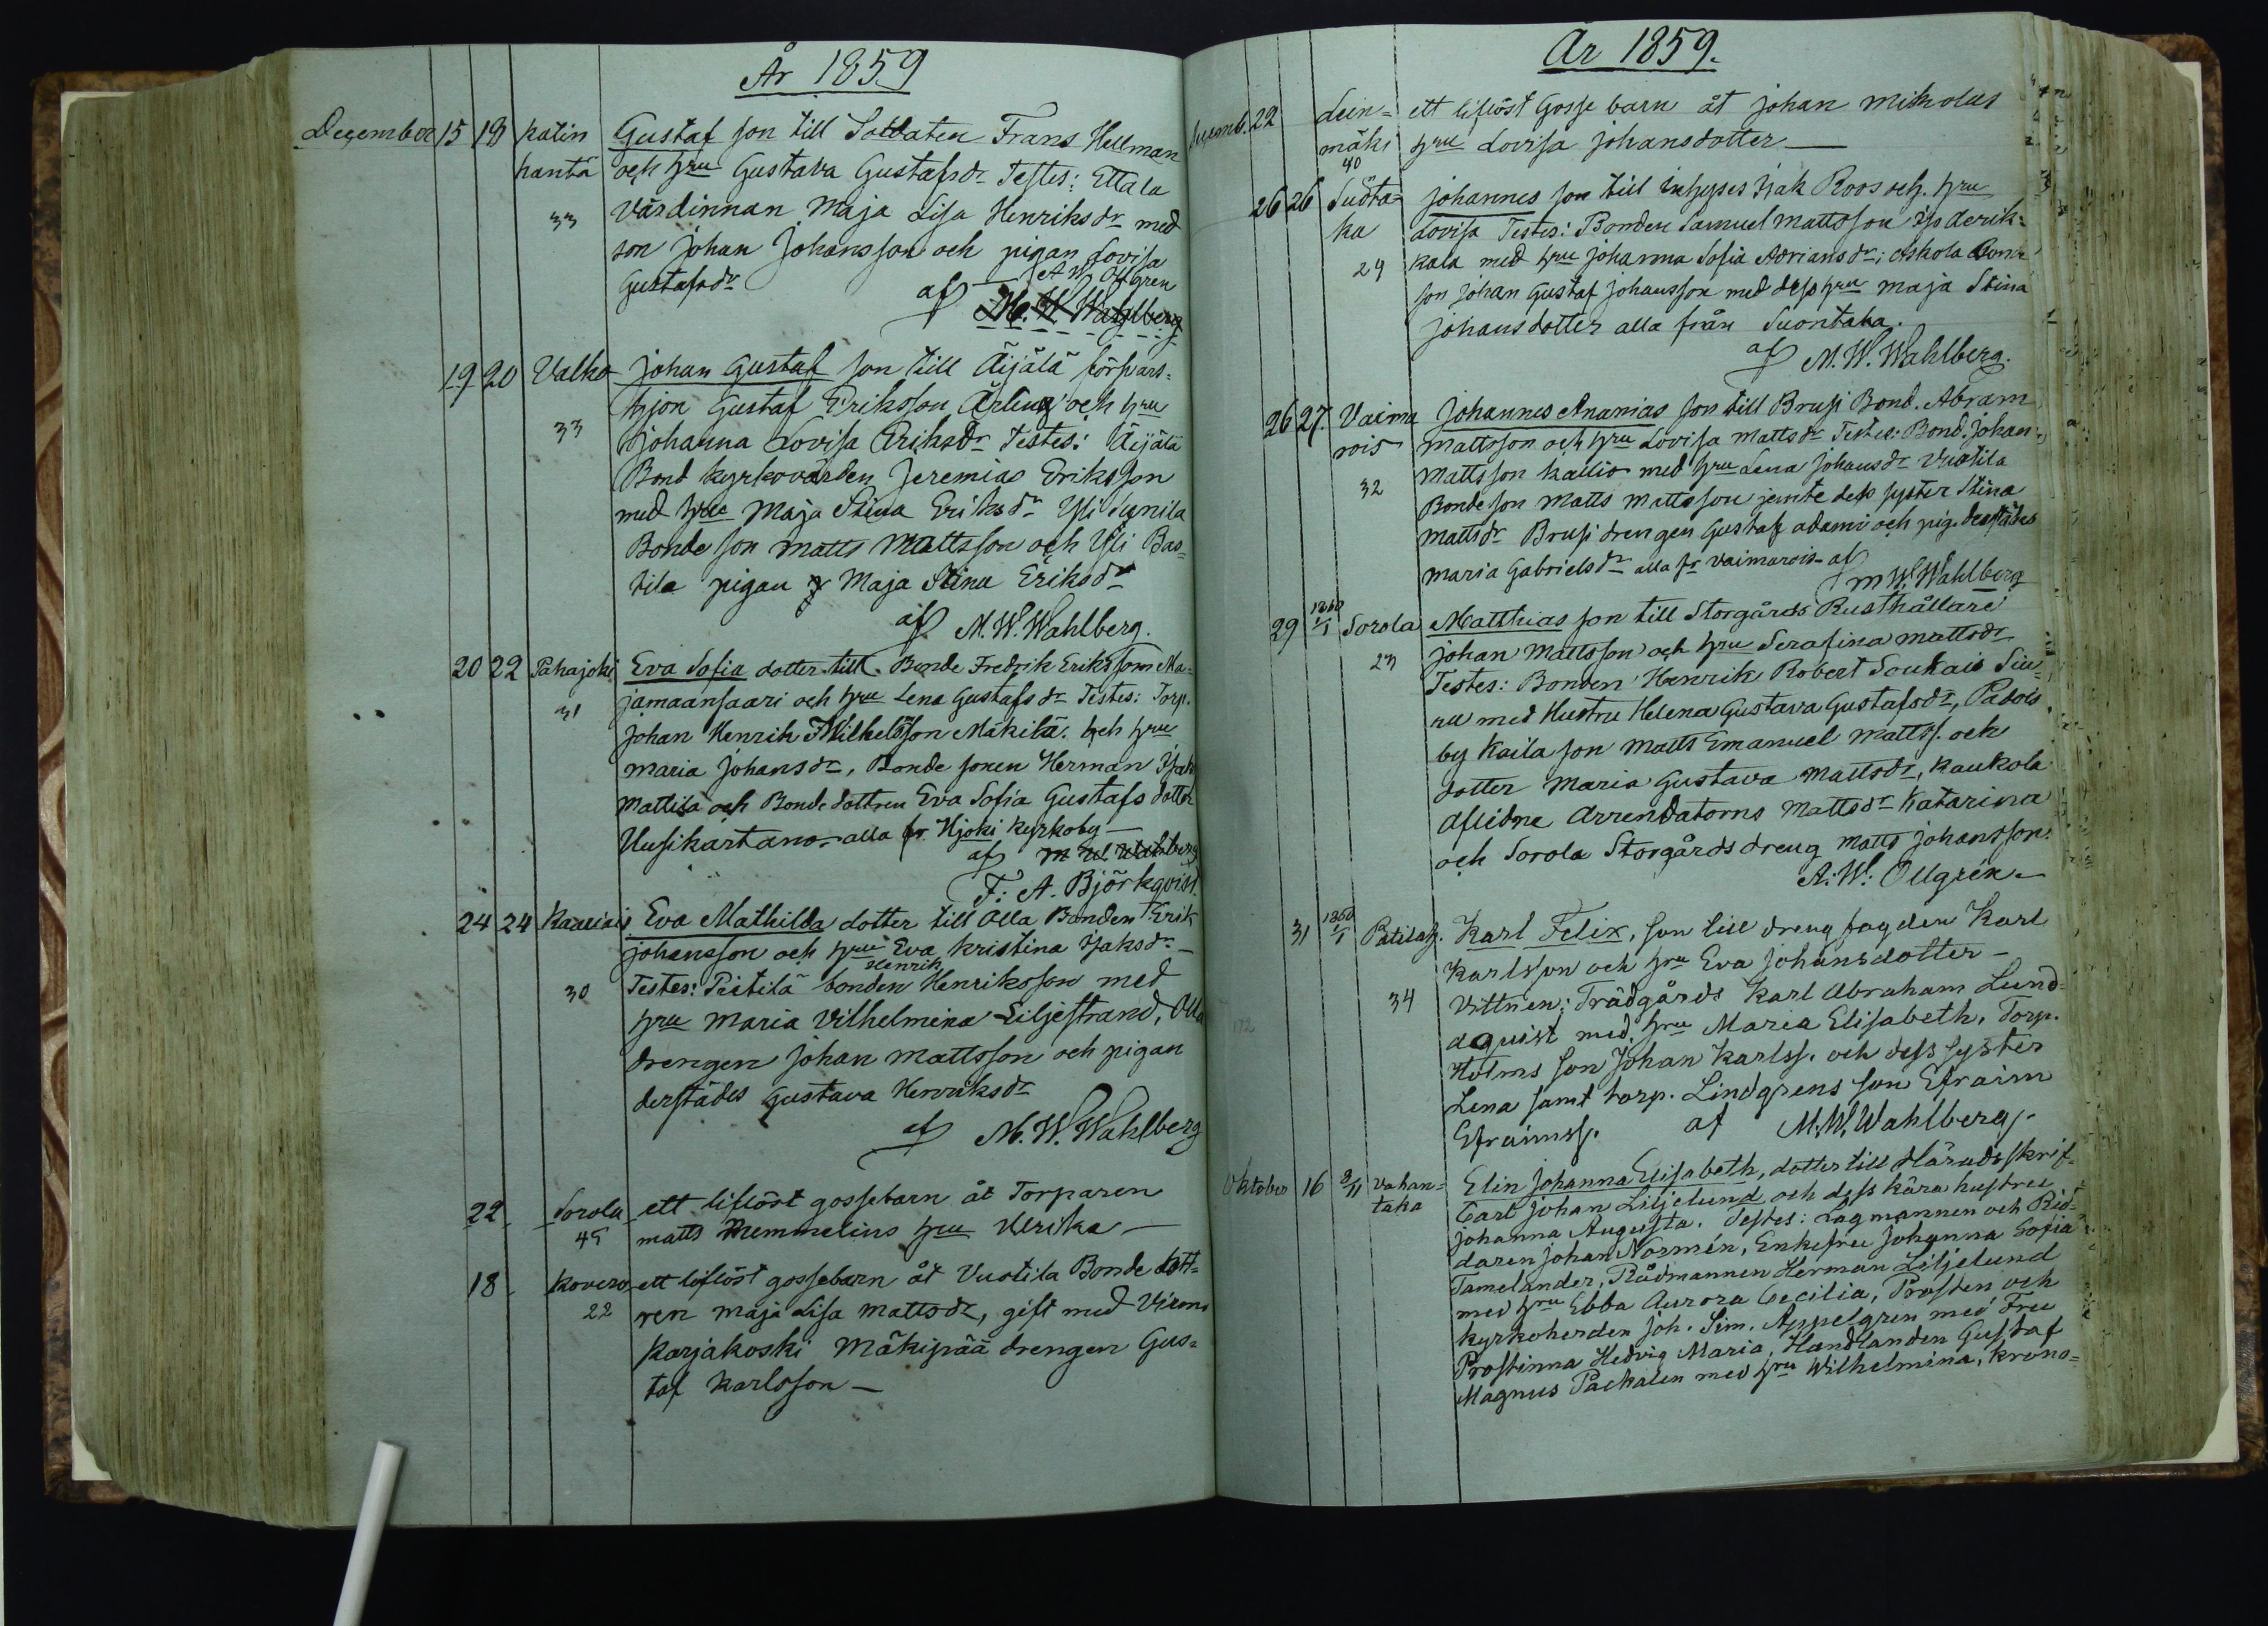 År 1859
December 15 18 Katin Gustaf son till Soldaten Frans Hellman
hantä och hru Gustava Gustafsdr Testes: Ettala
33 Värdinnan Maja Lisa Henriksdr med
son Johan Johansson och pigan Lovisa
Gustafsdr A. W. Ollgren
af M. W. Wahlberg
19 20 Valko Johan Gustaf son till Äijälä försvars-
hjon Gustaf Eriksson Ärling och hru
33 Johanna Lovisa Eriksdr Testes: Äijälä
Bond kyrkovärden Jeremias Eriksson
med hru Maja Stina Eriksdr Yli Sunila
Bonde son Matts Mattsson och Yli Bas-
tila pigan Maja Stina Eriksdr
af M. W. Wahlberg.
20 22 Pahajoki Eva Sofia dotter till Bonde Fredrik Eriksson Ma-
31 jamaansaari och hru Lena Gustafsdr Testes: Torp.
Johan Henrik Wilhelsson Mäkilä och hru
Maria Johansdr, Bonde sonen Herman Isak
Mattila och Bonde dottren Eva Sofia Gustafs dotter
Uusikartano alla fr. Hjoki Kyrkoby
af M W Wahlberg
F. A. Björkqvist
24 24 Kaariais Eva Mathilda dotter till Olla Bonden Erik
Johansson och hru Eva Kristina Isaksdr
Henrik
30 Testes: Pietilä bonden Henriksson med
hru Maria Vilhelmina Liljestrand, Olla
drengen Johan Mattsson och pigan
derstädes Gustava Henriksdr
af M. W. Wahlberg
22 Sorola ett liflöst gossebarn åt Torparen
45 Matts Memmelins hru Ulrika
18 Kovero ett liflöst gossebarn åt Vuotila Bonde dott-
22 ren Maja Lisa Mattsdr, gift med Virmo
Karjakoski Mäkipää drengen Gus-
taf Karlsson
År 1859.
Decemb. 22 Lein- ett liflöst Gosse barn åt Johan Mikolas
mäki hru Lovisa Johansdotter
40
26 26 Suota- Johannes son till inhyses Isak Roos och hru
ka Lovisa Testes: Bonden Samuel Mattsson
29 kala med hru Johanna Sofia Adriansdr; Askola Bond
son Johan Gustaf Johansson med dess hru Maja Stina
Johansdotter alla från Suontaka.
af M. W. Wahlberg.
26 27. Vaima Johannes Ananias son till Brusi Bond. Abram
rois Mattsson och hru Lovisa Mattsdr Testes: Bond. Johan
32 Mattsson Kallio med hru Lena Johansdr Vuotila
Bonde son Matts Mattsson jemte dess syster Stina
Mattsdr Brusi drengen Gustaf Adami och pig. derstädes
Maria Gabrielsdr alla fr Vaimarois af
M W. Wahlberg
29 1860 1/1 Sorola Matthias son till Storgårds Rusthållare
23 Johan Mattsson och hru Serafina Mattsdr
Testes: Bonden Henrik Robert Soukais Siu-
ru med Hustru Helena Gustava Gustafsdr, Padois
by Kaila son Matts Emanuel Mattss. och
dotter Maria Gustava Mattsdr, Kaukola
aflidne Arrendatorns Mattsdr Katarina
och Sorola Storgårds dreng Matts Johansson.
A. W. Ollgrén
31 1860 1/1 Patila h. Karl Felix, son till drengfogden Karl
Karlsson och hru Eva Johansdotter
34 Vittnen: Trädgårds Karl Abraham Lund-
172 dquist med hru Maria Elisabeth, Torp.
Holms son Johan Karlss. och dess syster
Lena samt torp. Lindgrens son Efraim
Efraimss. af M. W. Wahlberg.
Oktober 16 3/11 Vahan- Elin Johanna Elisabeth, dotter till Häradsskrif-
taka Carl Johan Liljelund och dess kära hustru
Johanna Augusta. Testes: Lagmannen och Rid-
daren Johan Normén, Enkefru Johanna Sofia
Tamelander, Rådmannen Herman Liljelund
med hru Ebba Aurora Cecilia, Prosten och
kyrkoherden Joh. Sim. Appelgren med Fru
Prostinna Hedvig Maria, Handlanden Gustaf
Magnus Packalen med hru Wilhelmina, krono-